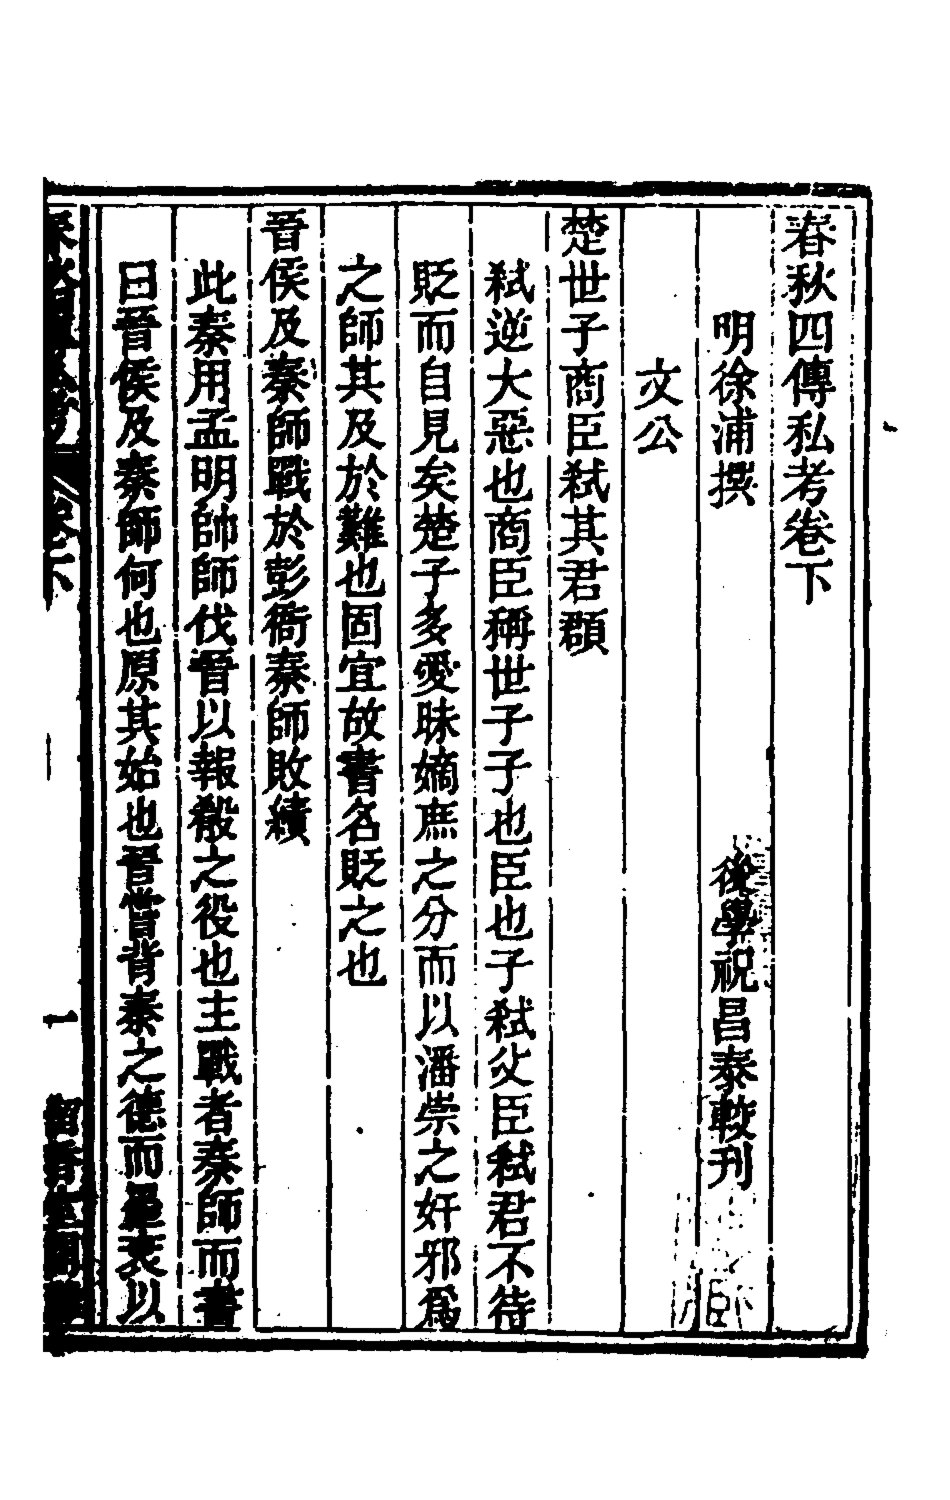 春秋四傳私考卷下
明徐浦撰 後學祝昌泰較刊
文公
楚世子商臣弑其君頵
弑逆大惡也商臣稱世子子也臣也子弑父臣弑君不待
貶而自見矣楚子多愛昧嫡庶之分而以潘崇之奸邪爲
之師其及於難也固宜故書名貶之也
晉侯及秦師戰於彭衙秦師敗績
此秦用孟明帥師伐晉以報殽之役也主戰者秦師而書
曰晉侯及秦師何也原其始也晉嘗背秦之德而墨衰以
春秋四傳私考 卷下 一